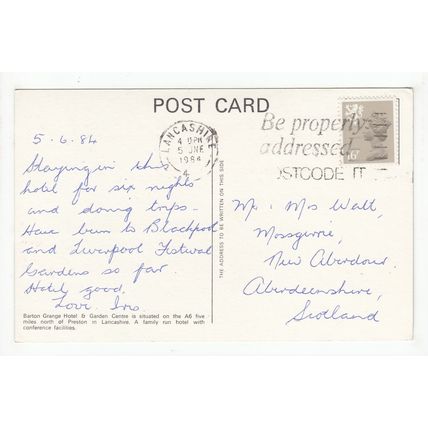 POST CARD
LANCASHIRE
4 - PM
5 JNE
1984
4
Be properly
addressed
POSTCODE IT
16P
5.6.84
Staying in this
hotel for six nights
and doing trips.
Have been to Blackpool
and Liverpool Festival
Gardens so far.
Hotel good.
Love. Iris
Barton Grange Hotel & Garden Centre is situated on the A6 five
miles north of Preston in Lancashire. A family run hotel with
conference facilities.
THE ADDRESS TO BE WRITTEN ON THIS SIDE
Mr. Mrs Watt,
Mossgirrie,
New Aberdour,
Aberdeenshire,
Scotland